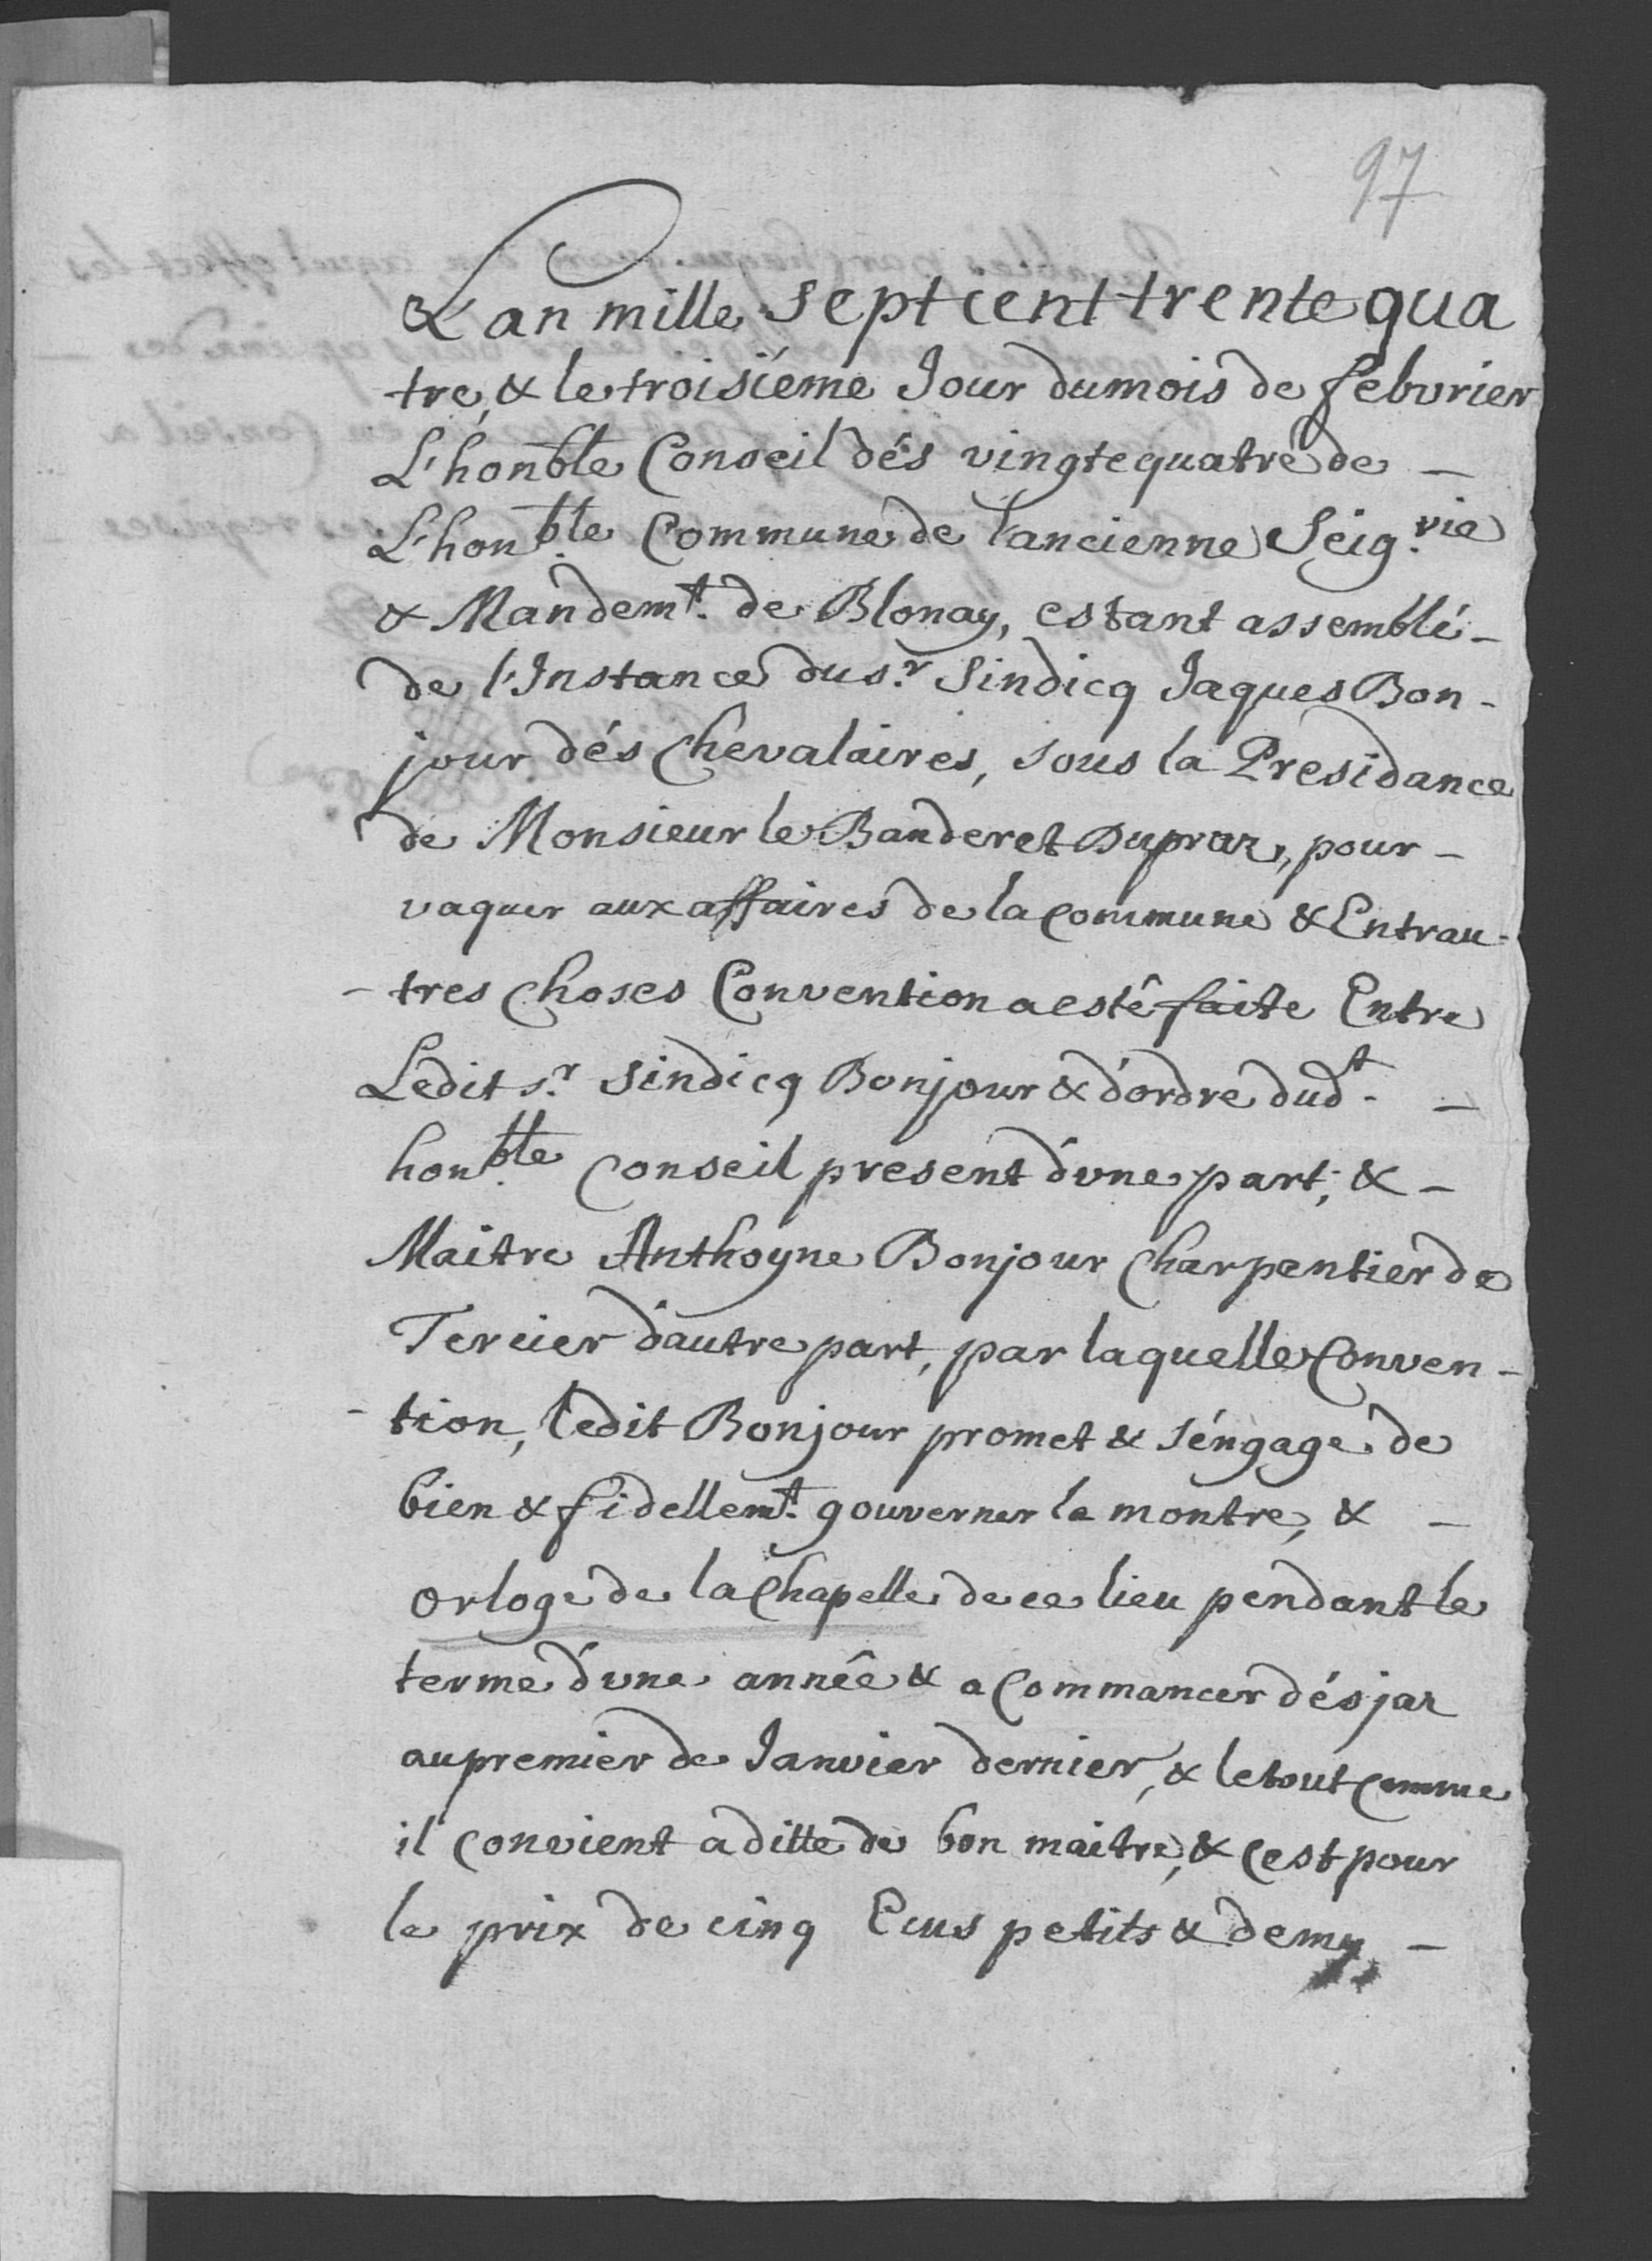 97
L'an mille Sept cent trente qua
tre, & le troisiéme Jour du mois de febvrier
L'hon.ble Conseil dés vingtequatre de -
L'hon.ble Commune de l'ancienne Seig.rie
& Mandem.t de Blonay, estant assemblé -
de l'Instance du s.r Sindicq Jaques Bon -
jour dés Chevalaires, sous la Presidance
de Monsieur le Banderet Dupraz, pour -
vaquer aux affaires de la Commune & Entrau -
- tres Choses Convention a esté faite Entre
Ledit s.r Sindicq Bonjour & d'ordre dud.t -
hon.ble Conseil present d'vne part; & -
Maitre Anthoyne Bonjour Charpentier de
Tercier d'autre part, par laquelle Conven -
- tion, ledit Bonjour promet & s'éngage de
bien & fidellem.t gouverner la montre, & -
orloge de la Chapelle de ce lieu pendant le
terme d'vne année & a Commancer dés jaz
au premier de Janvier dernier, & le tout Comme
il Convient a ditte de bon maitre, & Cest pour
le prix de cinq Ecus petits & demy -